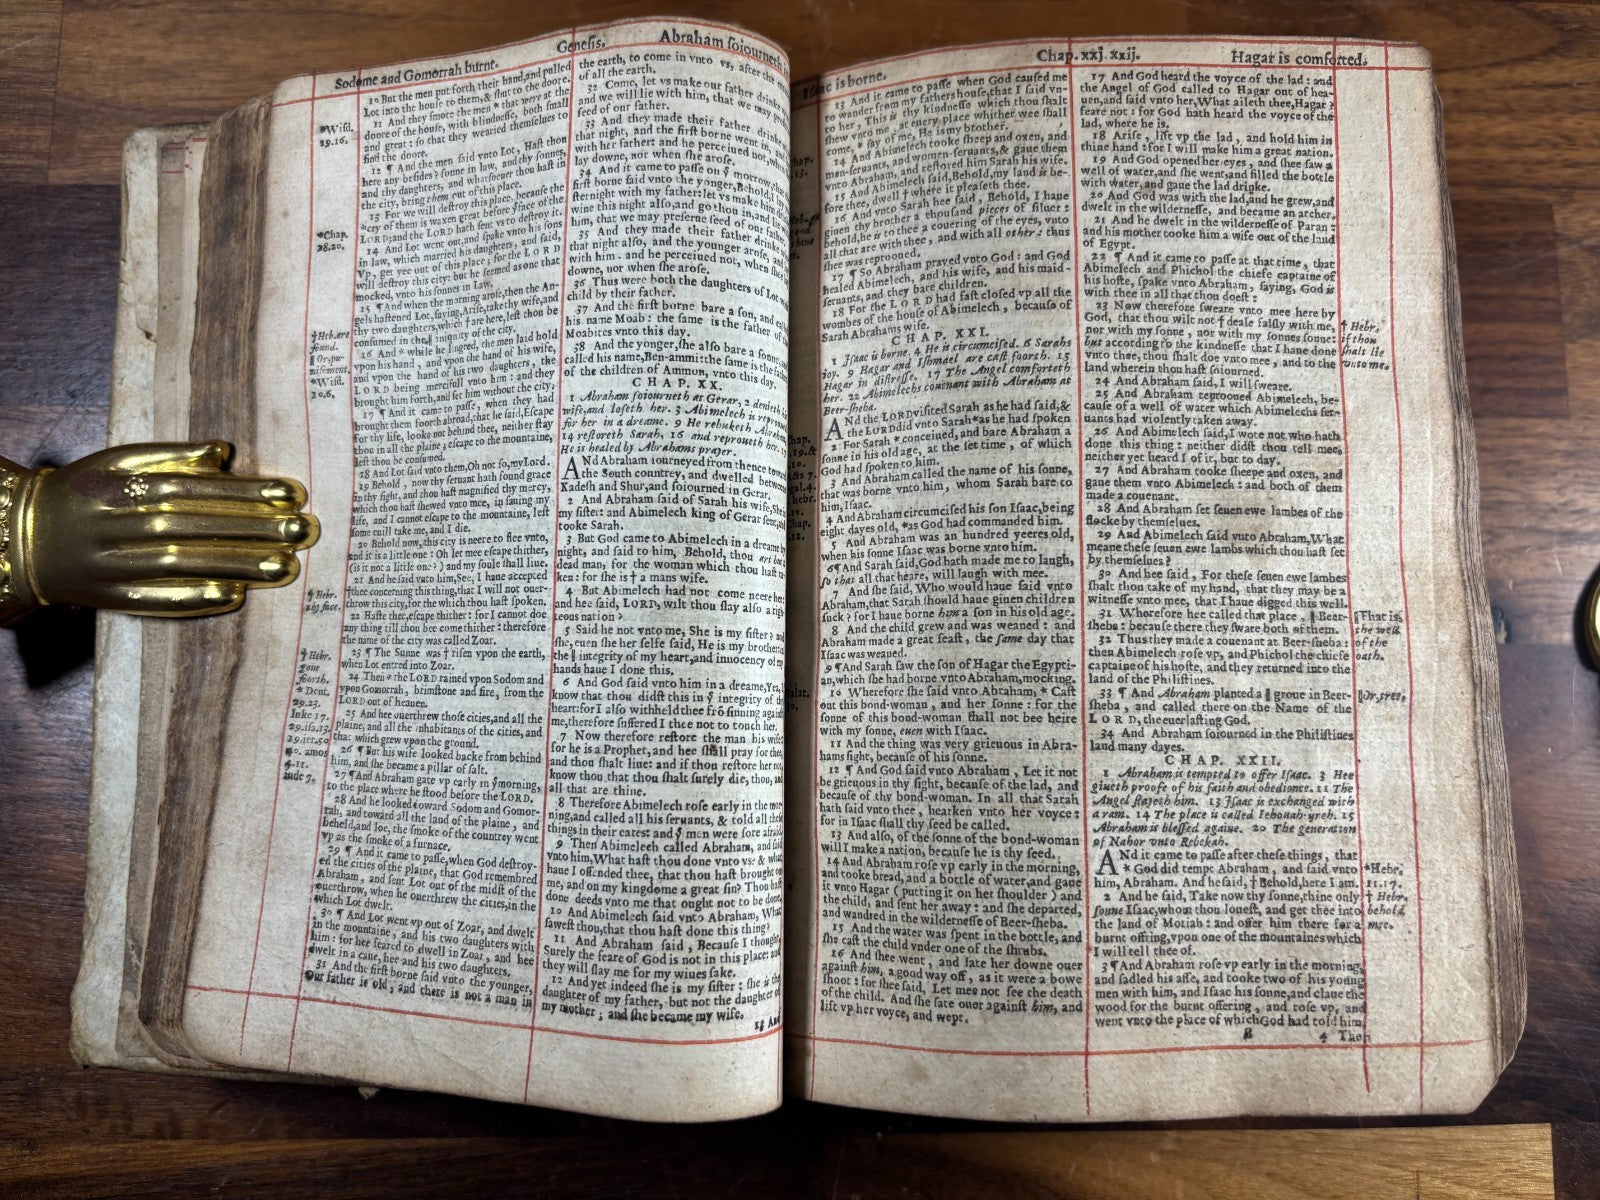 Sodome and Gomorrah burnt.
Geneſis.
Abraham ſojourneth
10 But the men put forth their hand, and pulled
Lot into the houſe to them, & ſhut to the doore.
11 And they ſmote the men * that were at the
doore of the houſe, with blindneſſe, both ſmall
and great: ſo that they wearied themſelues to
find the doore.
12 ¶ And the men ſaid vnto Lot, Haſt thou
here any beſides? ſonne in law, and thy ſonnes,
and thy daughters, and whatſoeuer thou haſt in
the city, bring them out of this place.
13 For we will deſtroy this place, becauſe the
*cry of them is waxen great before ye face of the
LORD; and the LORD hath ſent vs to deſtroy it.
14 And Lot went out, and ſpake vnto his ſons
in law, which married his daughters, and ſaid,
Vp, get yee out of this place; for the LORD
will deſtroy this city: but he ſeemed as one that
mocked, vnto his ſonnes in Law.
15 ¶ And when the morning aroſe, then the An-
gels haſtened Lot, ſaying, Ariſe, take thy wife, and
thy two daughters, which † are here, leſt thou be
conſumed in the ‖ iniquity of the city.
16 And * while he lingred, the men laid hold
vpon his hand, and vpon the hand of his wife,
and vpon the hand of his two daughters, the
LORD being mercifull vnto him: and they
brought him forth, and ſet him without the city.
17 ¶ And it came to paſſe, when they had
brought them foorth abroad, that he ſaid, Eſcape
for thy life, looke not behind thee, neither ſtay
thou in all the plaine; eſcape to the mountaine,
leſt thou be conſumed.
18 And Lot ſaid vnto them, Oh not ſo, my Lord.
19 Behold, now thy ſeruant hath found grace
in thy ſight, and thou haſt magnified thy mercy,
which thou haſt ſhewed vnto mee, in ſauing my
life, and I cannot eſcape to the mountaine, leſt
ſome euill take me, and I die.
20 Behold now, this city is neere to flee vnto,
and it is a little one: Oh let mee eſcape thither,
(is it not a little one?) and my ſoule ſhall liue.
21 And he ſaid vnto him, See, I haue accepted
†thee concerning this thing, that I will not ouer-
throw this city, for the which thou haſt ſpoken.
22 Haſte thee, eſcape thither: for I cannot doe
any thing till thou bee come thither: therefore
the name of the city was called Zoar.
23 ¶ The Sunne was † riſen vpon the earth,
when Lot entred into Zoar.
24 Then * the LORD rained vpon Sodom and
vpon Gomorrah, brimſtone and fire, from the
LORD out of heauen.
25 And hee ouerthrew thoſe cities, and all the
plaine, and all the inhabitants of the cities, and
that which grew vpon the ground.
26 ¶ But his wife looked backe from behind
him, and ſhe became a pillar of ſalt.
27 ¶ And Abraham gate vp early in ye morning,
to the place where he ſtood before the LORD.
28 And he looked toward Sodom and Gomor-
rah, and toward all the land of the plaine, and
beheld, and loe, the ſmoke of the countrey went
vp as the ſmoke of a furnace.
29 ¶ And it came to paſſe, when God deſtroy-
ed the cities of the plaine, that God remembred
Abraham, and ſent Lot out of the midſt of the
ouerthrow, when he ouerthrew the cities, in the
which Lot dwelt.
30 ¶ And Lot went vp out of Zoar, and dwelt
in the mountaine, and his two daughters with
him: for hee feared to dwell in Zoar, and hee
dwelt in a caue, hee and his two daughters.
31 And the firſt borne ſaid vnto the younger,
Our father is old; and there is not a man in
*Wiſd.
19.16.
*Chap.
18.20.
† Heb. are
found.
‖ Or, pu-
niſhment.
*Wiſd.
10.6.
† Hebr.
thy face.
† Hebr.
gone
fourth.
* Deut.
29.23.
luke 17.
29. iſa. 13.
19. ier. 50
40. amos
4.11.
iude 7.
the earth, to come in vnto vs, after the
of all the earth.
32 Come, let vs make our father drinke
and we will lie with him, that we may
ſeed of our father.
33 And they made their father drinke
that night, and the firſt borne went in, and
with her father: and he perceiued not, when
lay downe, nor when ſhe aroſe.
34 And it came to paſſe on ye morrow, that
firſt borne ſaid vnto the yonger, Behold, I lay
ſternight with my father: let vs make him
wine this night alſo, and go thou in, and lie
him, that we may preſerue ſeed of our father.
35 And they made their father drinke
that night alſo, and the younger aroſe, and
with him: and he perceiued not, when ſhe
downe, nor when ſhe aroſe.
36 Thus were both the daughters of Lot with
child by their father.
37 And the firſt borne bare a ſon, and called
his name Moab: the ſame is the father of the
Moabites vnto this day.
38 And the yonger, ſhe alſo bare a ſonne, and
called his name, Ben-ammi: the ſame is the father
of the children of Ammon, vnto this day.
CHAP. XX.
1 Abraham ſojourneth at Gerar, 2 denieth his
wife, and loſeth her. 3 Abimelech is reproued
for her in a dreame. 9 He rebuketh Abraham,
14 reſtoreth Sarah, 16 and reproueth her. 17
He is healed by Abrahams prayer.
ANd Abraham iourneyed from thence toward
the South countrey, and dwelled between
Kadeſh and Shur, and ſoiourned in Gerar.
2 And Abraham ſaid of Sarah his wife, She is
my ſiſter: and Abimelech king of Gerar ſent, and
tooke Sarah.
3 But God came to Abimelech in a dreame by
night, and ſaid to him, Behold, thou art but a
dead man, for the woman which thou haſt ta-
ken: for ſhe is † a mans wife.
4 But Abimelech had not come neere her:
and hee ſaid, LORD, wilt thou ſlay alſo a righ-
teous nation?
5 Said he not vnto me, She is my ſiſter? and
ſhe, euen ſhe her ſelfe ſaid, He is my brother: in
the ‖ integrity of my heart, and innocency of my
hands haue I done this.
6 And God ſaid vnto him in a dreame, Yea, I
know that thou didſt this in ye integrity of thy
heart: for I alſo withheld thee frō ſinning againſt
me, therefore ſuffered I thee not to touch her.
7 Now therefore reſtore the man his wife:
for he is a Prophet, and hee ſhall pray for thee,
and thou ſhalt liue: and if thou reſtore her not,
know thou that thou ſhalt ſurely die, thou, and
all that are thine.
8 Therefore Abimelech roſe early in the mor-
ning, and called all his ſeruants, & told all theſe
things in their eares: and ye men were ſore afraid.
9 Then Abimelech called Abraham, and ſaid
vnto him, What haſt thou done vnto vs? & what
haue I offended thee, that thou haſt brought on
me, and on my kingdome a great ſin? Thou haſt
done deeds vnto me that ought not to be done.
10 And Abimelech ſaid vnto Abraham, What
ſaweſt thou, that thou haſt done this thing?
11 And Abraham ſaid, Becauſe I thought,
Surely the feare of God is not in this place: and
they will ſlay me for my wiues ſake.
12 And yet indeed ſhe is my ſiſter: ſhe is the
daughter of my father, but not the daughter of
my mother; and ſhe became my wife.
13 And
Iſaac is borne.
Chap. xxj. xxij.
Hagar is comforted.
13 And it came to paſſe when God cauſed me
to wander from my fathers houſe, that I ſaid vn-
to her, This is thy kindneſſe which thou ſhalt
ſhew vnto me, at euery place whither wee ſhall
come, * ſay of me, He is my brother.
14 And Abimelech tooke ſheep and oxen, and
men-ſeruants, and women-ſeruants, & gaue them
vnto Abraham, and reſtored him Sarah his wife.
15 And Abimelech ſaid, Behold, my land is be-
fore thee, dwell † where it pleaſeth thee.
16 And vnto Sarah hee ſaid, Behold, I haue
giuen thy brother a thouſand pieces of ſiluer:
behold, he is to thee a couering of the eyes, vnto
all that are with thee, and with all other: thus
ſhee was reprooued.
17 ¶ So Abraham prayed vnto God: and God
healed Abimelech, and his wife, and his maid-
ſeruants, and they bare children.
18 For the LORD had faſt cloſed vp all the
wombes of the houſe of Abimelech, becauſe of
Sarah Abrahams wife.
CHAP. XXI.
1 Iſaac is borne. 4 He is circumciſed. 6 Sarahs
ioy. 9 Hagar and Iſhmael are caſt foorth. 15
Hagar in diſtreſſe. 17 The Angel comforteth
her. 22 Abimelechs couenant with Abraham at
Beer-ſheba.
ANd the LORD viſited Sarah as he had ſaid, &
the LORD did vnto Sarah *as he had ſpoken
2 For Sarah * conceiued, and bare Abraham a
ſonne in his old age, at the ſet time, of which
God had ſpoken to him.
3 And Abraham called the name of his ſonne,
that was borne vnto him, whom Sarah bare to
him, Iſaac.
4 And Abraham circumciſed his ſon Iſaac, being
eight dayes old, *as God had commanded him.
5 And Abraham was an hundred yeeres old,
when his ſonne Iſaac was borne vnto him.
6 ¶ And Sarah ſaid, God hath made me to laugh,
ſo that all that heare, will laugh with mee.
7 And ſhe ſaid, Who would haue ſaid vnto
Abraham, that Sarah ſhould haue giuen children
ſuck? for I haue borne him a ſon in his old age.
8 And the child grew and was weaned: and
Abraham made a great feaſt, the ſame day that
Iſaac was weaned.
9 ¶ And Sarah ſaw the ſon of Hagar the Egypti-
an, which ſhe had borne vnto Abraham, mocking.
10 Wherefore ſhe ſaid vnto Abraham, * Caſt
out this bond-woman, and her ſonne: for the
ſonne of this bond-woman ſhall not bee heire
with my ſonne, euen with Iſaac.
11 And the thing was very grieuous in Abra-
hams ſight, becauſe of his ſonne.
12 ¶ And God ſaid vnto Abraham, Let it not
be grieuous in thy ſight, becauſe of the lad, and
becauſe of thy bond-woman. In all that Sarah
hath ſaid vnto thee, hearken vnto her voyce:
for in Iſaac ſhall thy ſeed be called.
13 And alſo, of the ſonne of the bond-woman
will I make a nation, becauſe he is thy ſeed.
14 And Abraham roſe vp early in the morning,
and tooke bread, and a bottle of water, and gaue
it vnto Hagar (putting it on her ſhoulder) and
the child, and ſent her away: and ſhe departed,
and wandred in the wilderneſſe of Beer-ſheba.
15 And the water was ſpent in the bottle, and
ſhe caſt the child vnder one of the ſhrubs.
16 And ſhee went, and ſate her downe ouer
againſt him, a good way off, as it were a bowe
ſhoot: for ſhee ſaid, Let mee not ſee the death
of the child. And ſhe ſate ouer againſt him, and
lift vp her voyce, and wept.
17 And God heard the voyce of the lad: and
the Angel of God called to Hagar out of hea-
uen, and ſaid vnto her, What aileth thee, Hagar?
feare not: for God hath heard the voyce of the
lad, where he is.
18 Ariſe, lift vp the lad, and hold him in
thine hand: for I will make him a great nation.
19 And God opened her eyes, and ſhee ſaw a
well of water, and ſhe went, and filled the bottle
with water, and gaue the lad drinke.
20 And God was with the lad, and he grew, and
dwelt in the wilderneſſe, and became an archer.
21 And he dwelt in the wilderneſſe of Paran:
and his mother tooke him a wife out of the land
of Egypt.
22 ¶ And it came to paſſe at that time, that
Abimelech and Phichol the chiefe captaine of
his hoſte, ſpake vnto Abraham, ſaying, God is
with thee in all that thou doeſt:
23 Now therefore ſweare vnto mee here by
God, that thou wilt not † deale falſly with me,
nor with my ſonne, nor with my ſonnes ſonne:
but according to the kindneſſe that I haue done
vnto thee, thou ſhalt doe vnto mee, and to the
land wherein thou haſt ſoiourned.
24 And Abraham ſaid, I will ſweare.
25 And Abraham reprooued Abimelech, be-
cauſe of a well of water which Abimelechs ſer-
uants had violently taken away.
26 And Abimelech ſaid, I wote not who hath
done this thing: neither didſt thou tell mee,
neither yet heard I of it, but to day.
27 And Abraham tooke ſheepe and oxen, and
gaue them vnto Abimelech: and both of them
made a couenant.
28 And Abraham ſet ſeuen ewe lambes of the
flocke by themſelues.
29 And Abimelech ſaid vnto Abraham, What
meane theſe ſeuen ewe lambs which thou haſt ſet
by themſelues?
30 And hee ſaid, For theſe ſeuen ewe lambes
ſhalt thou take of my hand, that they may be a
witneſſe vnto mee, that I haue digged this well.
31 Wherefore hee called that place, ‖ Beer-
ſheba: becauſe there they ſware both of them.
32 Thus they made a couenant at Beer-ſheba:
then Abimelech roſe vp, and Phichol the chiefe
captaine of his hoſte, and they returned into the
land of the Philiſtines.
33 ¶ And Abraham planted a ‖ groue in Beer-
ſheba, and called there on the Name of the
LORD, the euerlaſting God.
34 And Abraham ſoiourned in the Philiſtines
land many dayes.
CHAP. XXII.
1 Abraham is tempted to offer Iſaac. 3 Hee
giueth proofe of his faith and obedience. 11 The
Angel ſtayeth him. 13 Iſaac is exchanged with
a ram. 14 The place is called Iehouah-yreh. 15
Abraham is bleſſed againe. 20 The generation
of Nahor vnto Rebekah.
ANd it came to paſſe after theſe things, that
* God did tempt Abraham, and ſaid vnto
him, Abraham. And he ſaid, † Behold, here I am.
2 And he ſaid, Take now thy ſonne, thine only
ſonne Iſaac, whom thou loueſt, and get thee into
the land of Moriah: and offer him there for a
burnt offring, vpon one of the mountaines which
I will tell thee of.
3 ¶ And Abraham roſe vp early in the morning,
and ſadled his aſſe, and tooke two of his young
men with him, and Iſaac his ſonne, and claue the
wood for the burnt offering, and roſe vp, and
went vnto the place of which God had told him.
4 Then
† Hebr.
if thou
ſhalt lie
vnto me.
‖ That is,
the well
of the
oath.
‖ Or, tree.
*Hebr.
11.17.
† Hebr.
behold
mee.